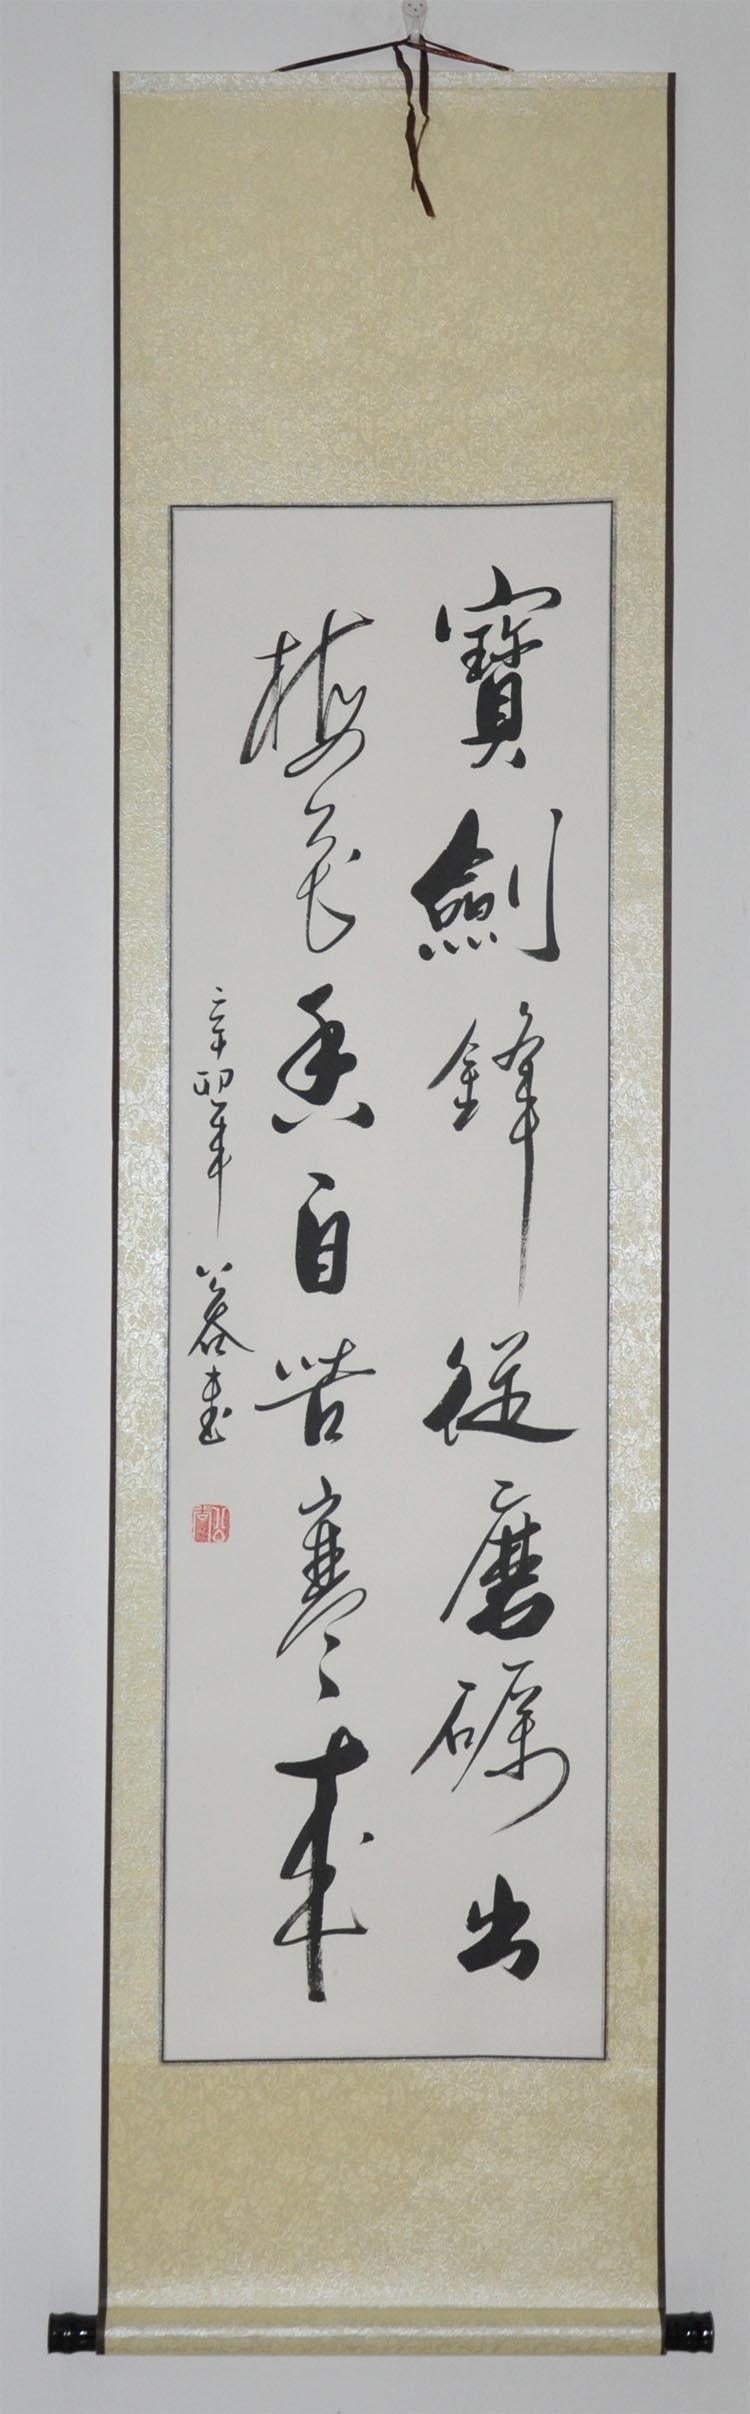 寶劍鋒從磨礪出
梅花香自苦寒來
辛卯年 書